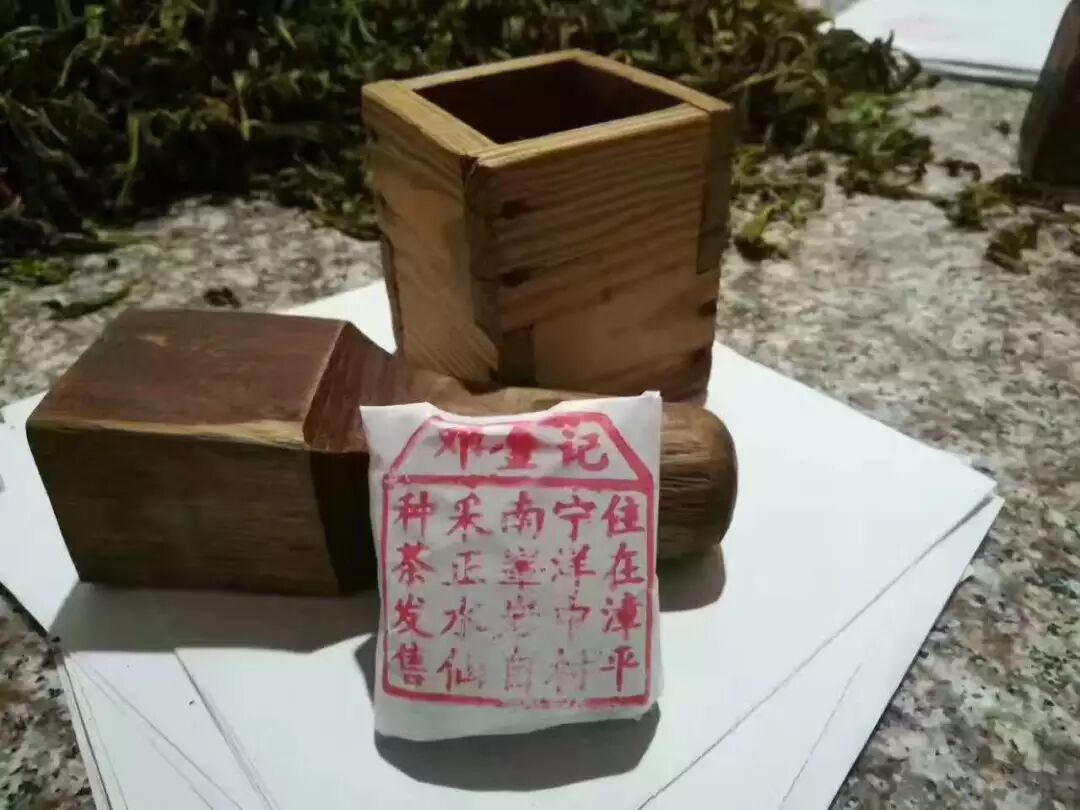 邓 记
住在漳平
宁洋中村
南峯岩自
采正水仙
种茶发售